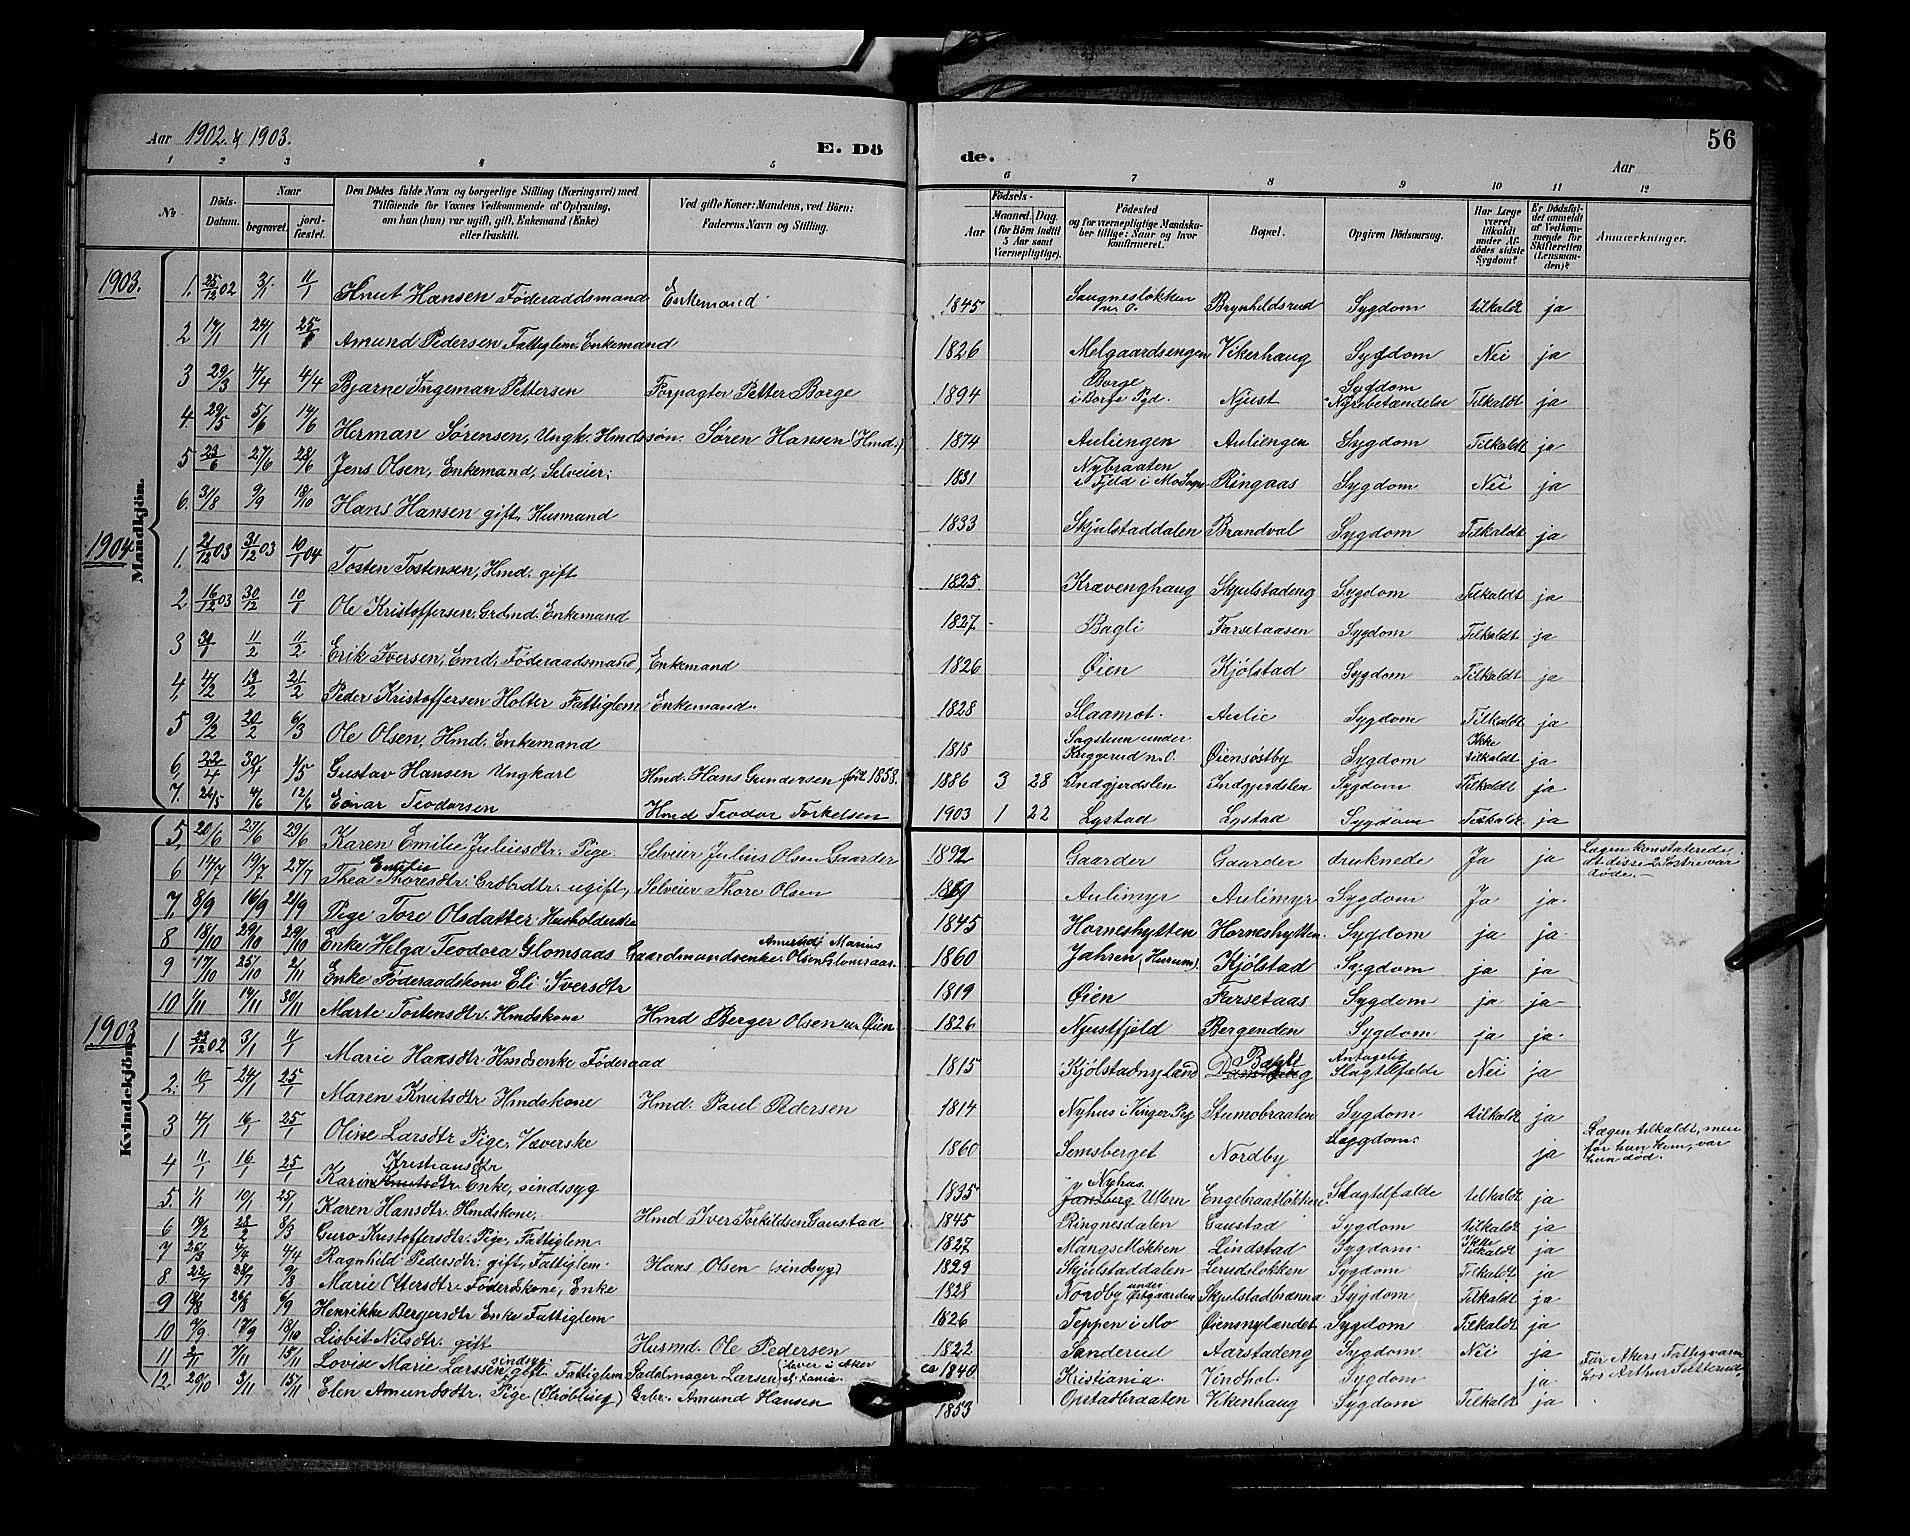 Aar 1902 & 1903.
E. Dö
de.
56
Aar
1 2 3 4 5 6 7 8 9 10 11 12
No
Döds-Datum.
Naar
begravet.
jord-fæstet.
Den Dödes fulde Navn og borgerlige Stilling (Næringsvei) med
Tilføiende for Voxnes Vedkommende af Oplysning,
om han (hun) var ugift, gift, Enkemand (Enke)
eller fraskilt.
Ved gifte Koner: Mandens, ved Börn:
Faderens Navn og Stilling.
Födsels-
Aar
Maaned. Dag.
(for Börn indtil
5 Aar samt
Værnepligtige).
Födested
og for værnepligtige Mandska-
ber tillige: Naar og hvor
konfirmeret.
Bopæl.
Opgiven Dödsaarsag.
Har Læge
været
tilkaldt
under Af-
dödes sidste
Sygdom?
Er Dödsfal-
det anmeldt
af Vedkom-
mende for
Skifteretten
(Lensman-
den)?
Anmærkninger.
Mandkjön.
1903.
1. 25/12 02 3/1 11/1 Knut Hansen Føderaadsmand Enkemand 1845 Brynhildsrud Sygdom tilkaldt ja
2 17/1 24/1 25/1 Amund Pedersen Fattiglem Enkemand 1826 Molgaardsengen Vikerhaug Sygdom Nei ja
3 29/3 4/4 4/4 Bjarne Ingeman Pettersen Forpagter Petter Borge 1894 Borge i Borge Pgd. Njust Sygdom Nyrebetændelse Tilkaldt ja
4. 29/5 5/6 14/6 Herman Sørensen, Ungk. Hmdssøn. Søren Hansen (Hmd.) 1874 Auliengen Auliengen Sygdom Tilkaldt ja
5 23/6 27/6 28/6 Jens Olsen, Enkemand, Selveier. 1831 Nybraaten i Fjeld i Mo Sogn Ringaas Sygdom Nei ja
6. 31/8 9/9 18/10 Hans Hansen gift, Husmand 1833 Skjulstaddalen Brandval Sygdom Tilkaldt ja
1904
1. 21/12 03 31/12 03 10/1 04 Tosten Tostensen, Hmd. gift 1825 Krævenghaug Skjulstadeng Sygdom Tilkaldt ja
2 16/12 03 30/12 10/1 Ole Kristoffersen Grdmd. Enkemand 1827 Bagli Farsetaasen Sygdom Tilkaldt ja
3 30/1 11/2 11/2 Erik Iversen, Emd, Føderaadsmand, Enkemand 1826 Øien Kjølstad Sygdom Tilkaldt ja
4, 4/2 13/2 21/2 Peder Kristoffersen Holter Fattiglem Enkemand. 1828 Slaamot. Aulie Sygdom Tilkaldt ja
5 9/2 20/2 6/3 Ole Olsen, Hmd. Enkemand 1815 Sagstuen under n. O. Øiensøstby Sygdom Ikke tilkaldt ja
6, 22/4 30/4 1/5 Gustav Hansen Ungkarl Hmd. Hans Gundersen født 1858. 1886 3 28 Indgjerdslen Indgjerdslen Sygdom Tilkaldt ja
7. 24/5 4/6 12/6 Teodorsen Hmd Teodor Torkelsen 1903 1 22 Lystad Lystad Sygdom Tilkaldt ja
Kvindekjön.
5, 20/6 27/6 29/6 Karen Emilie Juliusdtr. Pige. Selveier Julius Olsen Gaarder 1892 Gaarder Gaarder druknede Ja ja Lægen konstaterede, at disse 2 Søstre var døde.
6 14/7 19/7 27/7 Thea Emilie Thoresdtr. Grdbrdtr. ugift, Selveier Thore Olsen 1869 Aulimyr Aulimyr Sygdom Ja ja.
7. 8/9 16/9 21/9 Pige Tore Olsdatter Husholderske 1845 Horneshytten Horneshytten Sygdom ja ja
8 18/10 29/10 29/10 Enke Helga Teodora Glomsaas Gaardmandsenke Marius Olsen Glomsaas. 1860 Jahren (Hurum). Kjølstad Sygdom ja ja
9 17/10 25/10 2/11 Enke Føderaadskone Eli Iversdtr 1819 Øien Farsetaas Sygdom ja ja
10 1/11 14/11 30/11 Marte Tostensdtr. Hmdskone Hmd Berger Olsen ur Øien 1826 Njustfjeld Bergenden Sygdom ja ja.
1903
1 22/12 02 3/1 11/1 Marie Hansdtr. Hmdsenke Føderaad 1815 Kjølstadnyland Bagst Antagelig Slagtilfælde Nei ja
2. 10/1 24/1 25/1 Maren Knutsdtr Hmdskone Hmd. Paul Pedersen 1814 Nyhus i Vinger Pg. Stumobraaten Sygdom tilkaldt ja
3 4/1 16/1 25/1 Oline Larsdtr Pige, Væverske 1860 Semsberget Nordby Sygdom. ja Lægen tilkaldt, men før han kom, var hun død.
4 11/1 16/1 25/1 Karin Kristiansdtr Enke, sindssyg 1835 Nyhus. Ullern Engebraatløkken Slagtilfælde tilkaldt ja
5. 1/1 10/1 25/1 Karen Hansdtr. Hmdskone. Hmd Iver Torkildsen Gaustad 1845 Ringnesdalen Gaustad Sygdom tilkaldt ja
6 19/2 28/2 8/3 Guro Kristoffersdtr. Pige, Fattiglem. 1827 Mangsløkken Lindstad Sygdom Ikke tilkaldt ja
7 25/3 4/4 4/4 Ragnhild Pedersdtr. gift, Fattiglem. Hans Olsen (sindsyg) 1829 Skjulstaddalen Lerudsløkken Sygdom Tilkaldt ja
8 22/7 28/7 9/8 Marie Ottersdtr. Føderdskone, Enke 1828 Nordby under Østgaarden Skjulstadbrænna Sygdom Tilkaldt ja
9 18/8 26/8 6/9 Henrikke Bergersdtr Enke Fattiglem 1826 Teppen i Mo Øiensnylandet Sygdom Tilkaldt ja
10 7/9 17/9 18/10 Lisbit Nilsdtr. gift Husmd. Ole Pedersen 1822 Sanderud Aarstadeng Sygdom Nei ja
11 2/11 7/11 15/11 Lovise Marie Larssen, sindsyg gift. Fattiglem Sadelmager Larsen lever i Aker ca 1840 Kristiania. Vindhol. Sygdom ja. Før Akers Fattigvæsen
12 20/10 3/11 15/11 Elen Amundsdtr. Pige (Trøbling) Grbr. Amund Hansen 1853 Opstadbraaten Vikenhaug Sygdom Tilkaldt ja